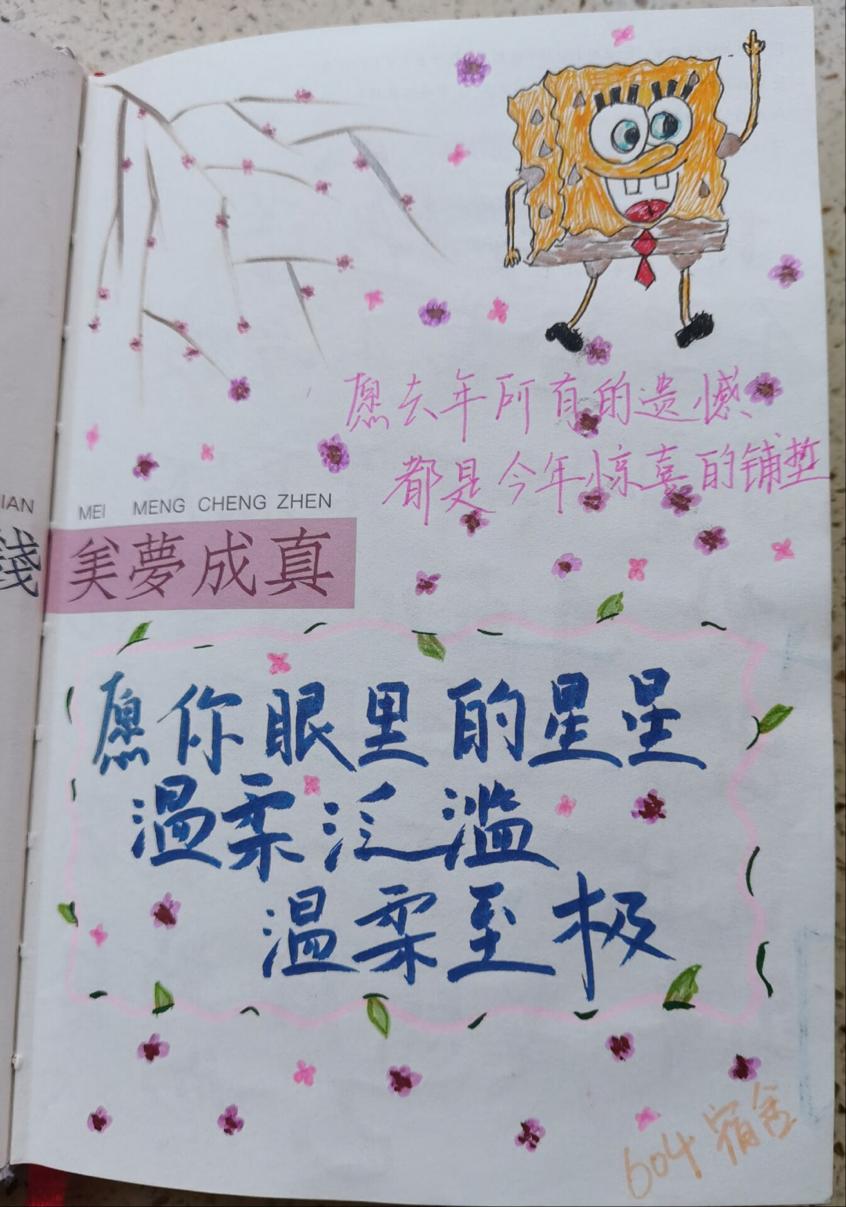 愿去年所有的遗憾
都是今年惊喜的铺垫
IAN
MEI MENG CHENG ZHEN
錢
美夢成真
愿你眼里的星星
温柔泛滥
温柔至极
604宿舍